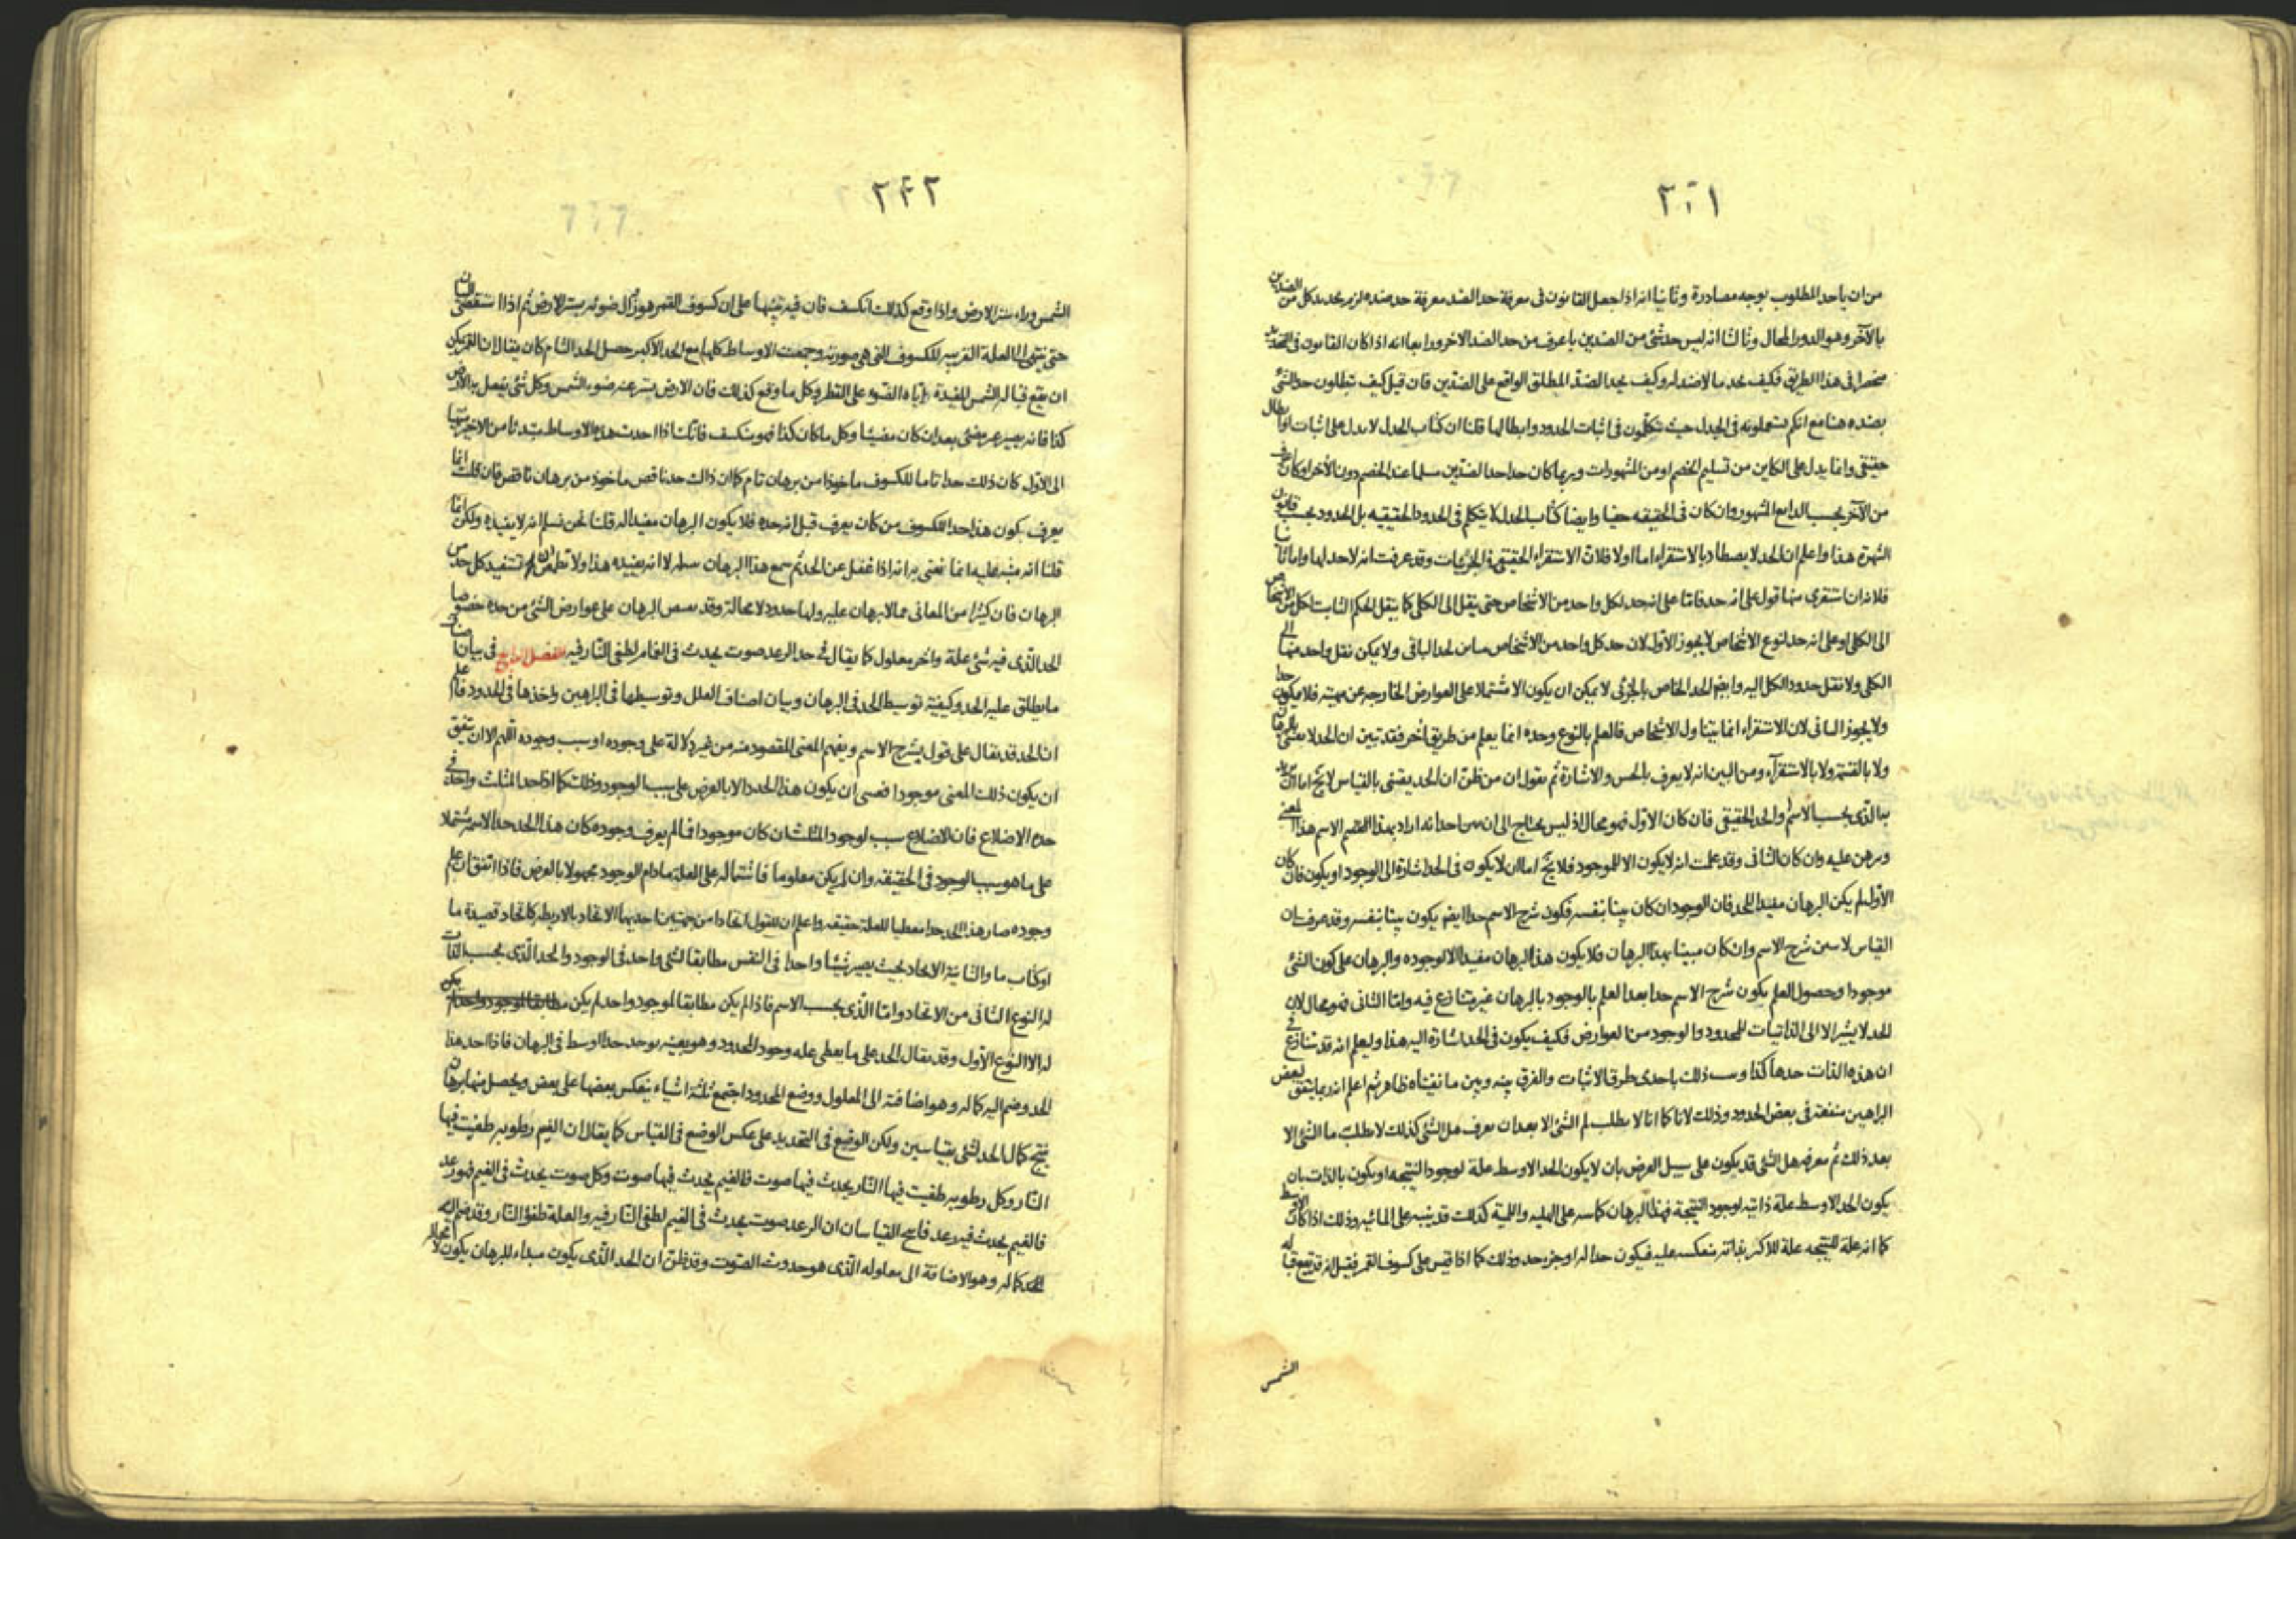 ٢٤١
من ان ياخد المطلوب بوجه مصادرة وثانيا انه اذا جعل القانون فى معرفة حد الضد معرفة حد ضده لزم تحديد كل من الضدين
بالآخر وهو الدور المحال وثالثا انه ليس حد شئ من الضدين باعرف من حد الضد الاخر ورابعا انه اذا كان القانون فى التحديد
منحصرا فى هذا الطريق فكيف نحد ما لا ضد له وكيف نحد الضد المطلق الواقع على الضدين فان قيل كيف تبطلون حد الشئ
بضده هنا مع انكم تستعملونه فى الجدل حيث تتكلمون فى اثبات الحدود وابطالها قلنا ان كتاب الجدل لا يدل على اثبات او ابطال
حقيقى وانما يدل على الكاين من تسليم الخصم او من المشهورات وربما كان حد احد الضدين مسلما عند الخصم دون الأخر او كان اعرف
من الآخر بحسب الرابع المشهور وان كان فى الحقيقه خفيا وايضا كتاب الجدل لا يتكلم فى الحدود الحقيقيه بل الحدود بحسب قانون
الشهرة هذا واعلم ان الحد لا يصطاد بالاستقراء اما اولا فلان الاستقراء الحقيقى فى الجزئيات وقد عرفت انه لا حد لها واما ثانيا
فلانه ان استقرى منها قول على انه حد فاما على انه حد لكل واحد من الاشخاص حتى ينقل الى الكلى كما ينقل الحكم الثابت لكل من الاشخاص
الى الكلى او على انه حد لنوع الاشخاص لا يجوز الأول لان حد كل واحد من الاشخاص مباين لحد الباقى ولا يمكن نقل واحد منها الى
الكلى ولا نقل حدود الكل اليه وايضا الحد الخاص بالجزئى لا يمكن ان يكون الا مشتملا على العوارض الخارجه عن مهيته فلا يكون حدا
ولا يجوز الثانى لان الاستقراء انما يتناول الاشخاص فالعلم بالنوع وحده انما يعلم من طريق أخر فقد تبين ان الحد لا يقتنى بالبرهان
ولا بالقسمة ولا بالاستقرآء ومن البين انه لا يعرف بالحس والاشارة ثم نقول ان من ظن ان الحد يقتنى بالقياس لا يخ اما ان يريد
به الذى بحسب الاسم او الحد الحقيقى فان كان الاول فهو محال اذ ليس يحتاج الى ان يبرهن احد انه اراد بهذا الاسم هذا المعنى
وبرهن عليه وان كان الثانى وقد علمت انه لا يكون الا للموجود فلا يخ اما ان لا يكون فى الحد اشارة الى الوجود او يكون فان كان
الأول لم يكن البرهان مفيدا للحد فان الوجود ان كان بينا بنفسه فكون شرح الاسم حدا ايضا يكون بينا بنفسه وقد عرفت ان
القياس لا يبين شرح الاسم وان كان مبينا بهذا البرهان فلا يكون هذا البرهان مفيدا الا لوجوده والبرهان على كون الشئ
موجودا وحصول العلم بكون شرح الاسم حدا بعد العلم بالوجود بالبرهان غير متنازع فيه واما الثانى فهو محال لان
الحد لا يشير الا الى الذاتيات للمحدود والوجود من العوارض فكيف يكون فى الحد اشارة اليه هذا وليعلم انه قد تنازع فى
ان هذه الذات حدها كذا وثبت ذلك باحدى طرق الاثبات والفرق بينه وبين ما نفيناه ظاهر ثم اعلم انه ربما يتفق بعض
البراهين منفعته فى بعض الحدود وذلك لانا كما انا لا نطلب لم الشئ الا بعد ان نعرف هل الشئ كذلك لا نطلب ما الشئ الا
بعد ذلك ثم معرفة هل الشئ قد يكون على سبيل العرض بان لا يكون الحد الاوسط علة لوجود النتيجه او يكون بالذات بان
يكون الحد الاوسط علة ذاتيه لوجود النتيجة فهذا البرهان كما ينبه على الهليه واللمية كذلك قد ينبه على المائيه وذلك اذا كان الاوسط
كما انه علة للنتيجه علة للاكبر بذاته منعكسه عليه فيكون حدا له او جزء حد وذلك كما اذا قيس على كسوف القمر فقيل انه قد يقع قباله
الشمس
٢٤٢
الشمس وراء ستر الارض واذا وقع كذلك انكسف فان فيه تنبيها على ان كسوف القمر هو زوال ضوئه بستر الارض ثم اذا استقصى البيان
حتى ينتهى الى العلة القريبه للكسوف التى هى صورته وجمعت الاوساط كلها مع الحد الاكبر حصل الحد التام كان يقال ان القمر يمكن
ان يقع قباله الشمس المفيدة اياه الضوء على القطر وكل ما وقع كذلك فان الارض يستر عنه ضوء الشمس وكل شئ يفعل به الارض
كذا فانه يصير غير مضئ بعد ان كان مضيئا وكل ما كان كذا فهو منكسف فانك اذا اخذت هذه الاوساط مبتدئا من الاخير منتهيا
الى الأول كان ذلك حدا تاما للكسوف ماخوذا من برهان تام كما ان ذاك حد ناقص ماخوذ من برهان ناقص فان قلت انما
يعرف كون هذا حدا للكسوف من كان يعرف قبل انه حده فلا يكون البرهان مفيدا له قلنا نحن نسلم انه لا يفيده ولكن انما
قلنا انه منبه عليه انما نعنى به انه اذا غفل عن الحد ثم سمع هذا البرهان تنبه له لا انه يفيده هذا ولا تظن ان تستفيد كل حد من
البرهان فان كثيرا من المعانى مما لا برهان عليه ولها حدود لا محالة وقد يبين البرهان على عوارض الشئ من حده خصوصا
الحد الذى فيه شئ علة وأخر معلول كما يقال فى حد الرعد صوت يحدث فى الغمام لطفى النار فيه الفصل الرابع فى بيان اصناف
ما يطلق عليه الحد وكيفية توسيط الحد فى البرهان وبيان اصناف العلل وتوسيطها فى البراهين واخذها فى الحدود فاعلم
ان الحد قد يقال على قول يشرح الاسم ويفهم المعنى المقصود منه من غير دلالة على وجوده او سبب وجوده اللهم الا ان يتفق
ان يكون ذلك المعنى موجودا فعسى ان يكون هذا الحد دالا بالعرض على سبب الوجود وذلك كما اذا حد المثلث واخذ فى
حده الاضلاع فان الاضلاع سبب لوجود المثلث ان كان موجودا فما لم يعرف وجوده كان هذا الحد حد الاسم مشتملا
على ما هو سبب الوجود فى الحقيقه وان لم يكن معلوما فاشتماله على العلة مادام الوجود مجهولا بالعرض فاذا اتفق ان علم
وجوده صار هذا الحد حدا معطيا للعلة حقيقه واعلم ان للقول اتحادا من جهتين احديهما الاتحاد بالاربطه كاتحاد قصيدة ما
او كتاب ما والثانية الاتحاد بحيث يصير شيئا واحدا فى النفس مطابقا لشئ واحد فى الوجود والحد الذى بحسب الذات
له النوع الثانى من الاتحاد واما الذى بحسب الاسم فاذا لم يكن مطابقا لموجود واحد لم يكن مطابقا لموجود واحد لم يكن
له الا النوع الأول وقد يقال الحد على ما يعطى علة وجود المحدود وهو بعينه يوخد حدا اوسط فى البرهان فاذا اخذ هذا
الحد وضم اليه كماله وهو اضافته الى المعلول ووضع المحدود اجتمع ثلثة اشياء ينعكس بعضها على بعض ويحصل منها برهان
ينتج كمال الحد لشئ بقياسين ولكن الوضع فى التحديد على عكس الوضع فى القياس كما يقال ان الغيم رطوبه طفيت فيها
النار وكل رطوبه طفيت فيها النار يحدث فيها صوت فالغيم يحدث فيها صوت وكل صوت يحدث فى الغيم فهو رعد
فالغيم يحدث فيه رعد فانتج القياسان ان الرعد صوت يحدث فى الغيم لطفى النار فيه والعلة طفؤ النار وقد ضم اليه
للحد كماله وهو الاضافة الى معلوله الذى هو حدوث الصوت وقد ظن ان الحد الذى يكون مبداء للبرهان يكون لا محالة